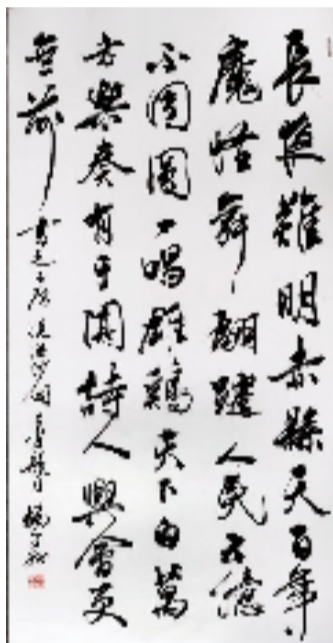 長夜難明赤縣天百年
魔怪舞翩躚人民五億
不團圓一唱雄鷄天下白萬
方樂奏有于闐詩人興會更
無前 書毛主席浣溪沙